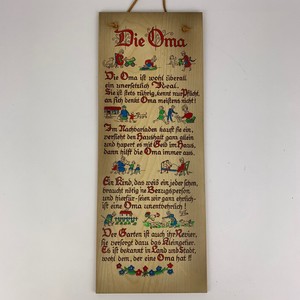 Die Oma
Die Oma ist wohl überall
ein unersetzlich Ideal.
Sie ist stets rührig, kennt nur Pflicht,
an sich denkt Oma meistens nicht!
Im Nachbarladen kauft sie ein,
versieht den Haushalt ganz allein
und hapert es mit Geld im Haus,
dann hilft die Oma immer aus.
Ein Kind, das weiß ein jeder schon,
braucht nötig 'ne Bezugsperson
und hierfür seien wir ganz ehrlich
ist eine Oma unentbehrlich!
Der Garten ist auch ihr Revier,
sie versorgt dazu das Kleingetier.
Es ist bekannt in Land und Stadt,
wohl dem, der eine Oma hat!!